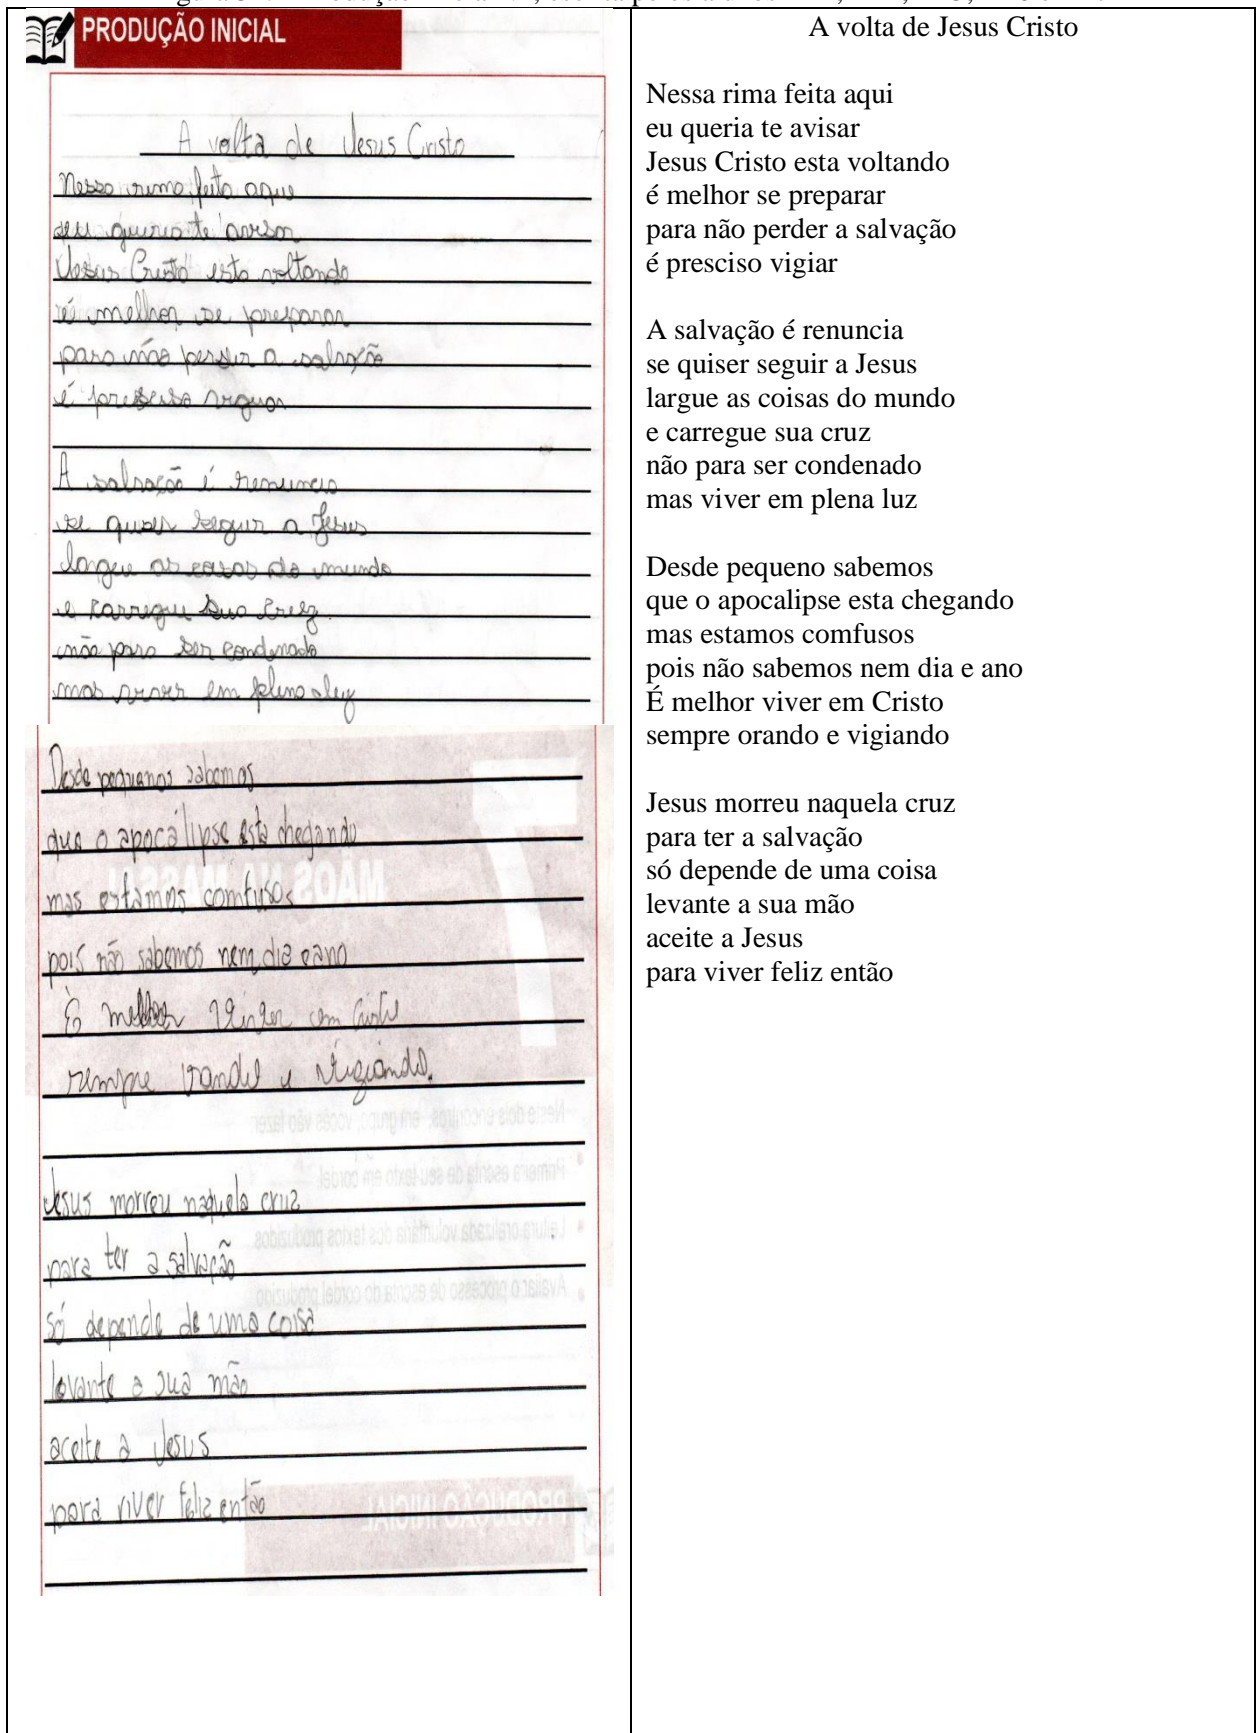 PRODUÇÃO INICIAL
A volta de Jesus Cristo
Nessa rima feita aqui
eu queria te avisar
Jesus Cristo esta voltando
é melhor se preparar
para não perder a salvação
é presciso vigiar
A salvação é renuncia
se quiser seguir a Jesus
largue as coisas do mundo
e carregue sua cruz
não para ser condenado
mas viver em plena luz
Desde pequenos sabemos
que o apocalipse esta chegando
mas estamos comfusos
pois não sabemos nem dia e ano
É melhor viver em Cristo
sempre orando e vigiando.
Jesus morreu naquela cruz
para ter a salvação
só depende de uma coisa
levante a sua mão
aceite a Jesus
para viver feliz então
MÃOS NA MASSA
Neste dois encontros, em grupo, vocês vão fazer:
Primeira escrita de seu texto em cordel.
Leitura oralizada voluntária dos textos produzidos.
Avaliar o processo de escrita do cordel produzido.
PRODUÇÃO INICIAL
A volta de Jesus Cristo
Nessa rima feita aqui
eu queria te avisar
Jesus Cristo esta voltando
é melhor se preparar
para não perder a salvação
é presciso vigiar
A salvação é renuncia
se quiser seguir a Jesus
largue as coisas do mundo
e carregue sua cruz
não para ser condenado
mas viver em plena luz
Desde pequeno sabemos
que o apocalipse esta chegando
mas estamos comfusos
pois não sabemos nem dia e ano
É melhor viver em Cristo
sempre orando e vigiando
Jesus morreu naquela cruz
para ter a salvação
só depende de uma coisa
levante a sua mão
aceite a Jesus
para viver feliz então